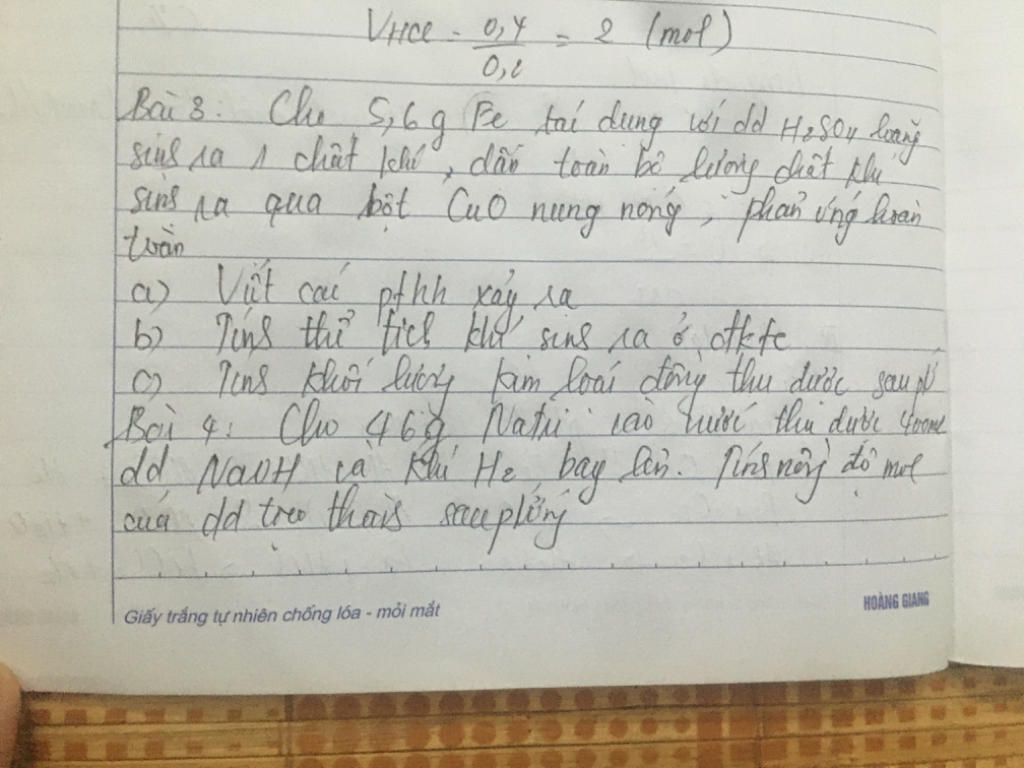 VHCl - 0,4 / 0,2 = 2 (mol)
Bài 3: Cho 5,6g Fe tái dung với dd H2SO4 loãng
sinh ra 1 chất khí, dẫn toàn bộ lượng chất khí
sinh ra qua bột CuO nung nóng, phản ứng hoàn
toàn
a) Viết các pthh xảy ra
b) Tính thể tích khí sinh ra ở đktc
c) Tính khối lượng kim loại đồng thu được sau pứ
Bài 4: Cho 46g Natri vào nước thu được 400ml
dd NaOH và khí H2 bay lên. Tính nồng độ mol
của dd tạo thành sau phứng
Giấy trắng tự nhiên chống lóa - mỏi mắt
HOÀNG GIANG